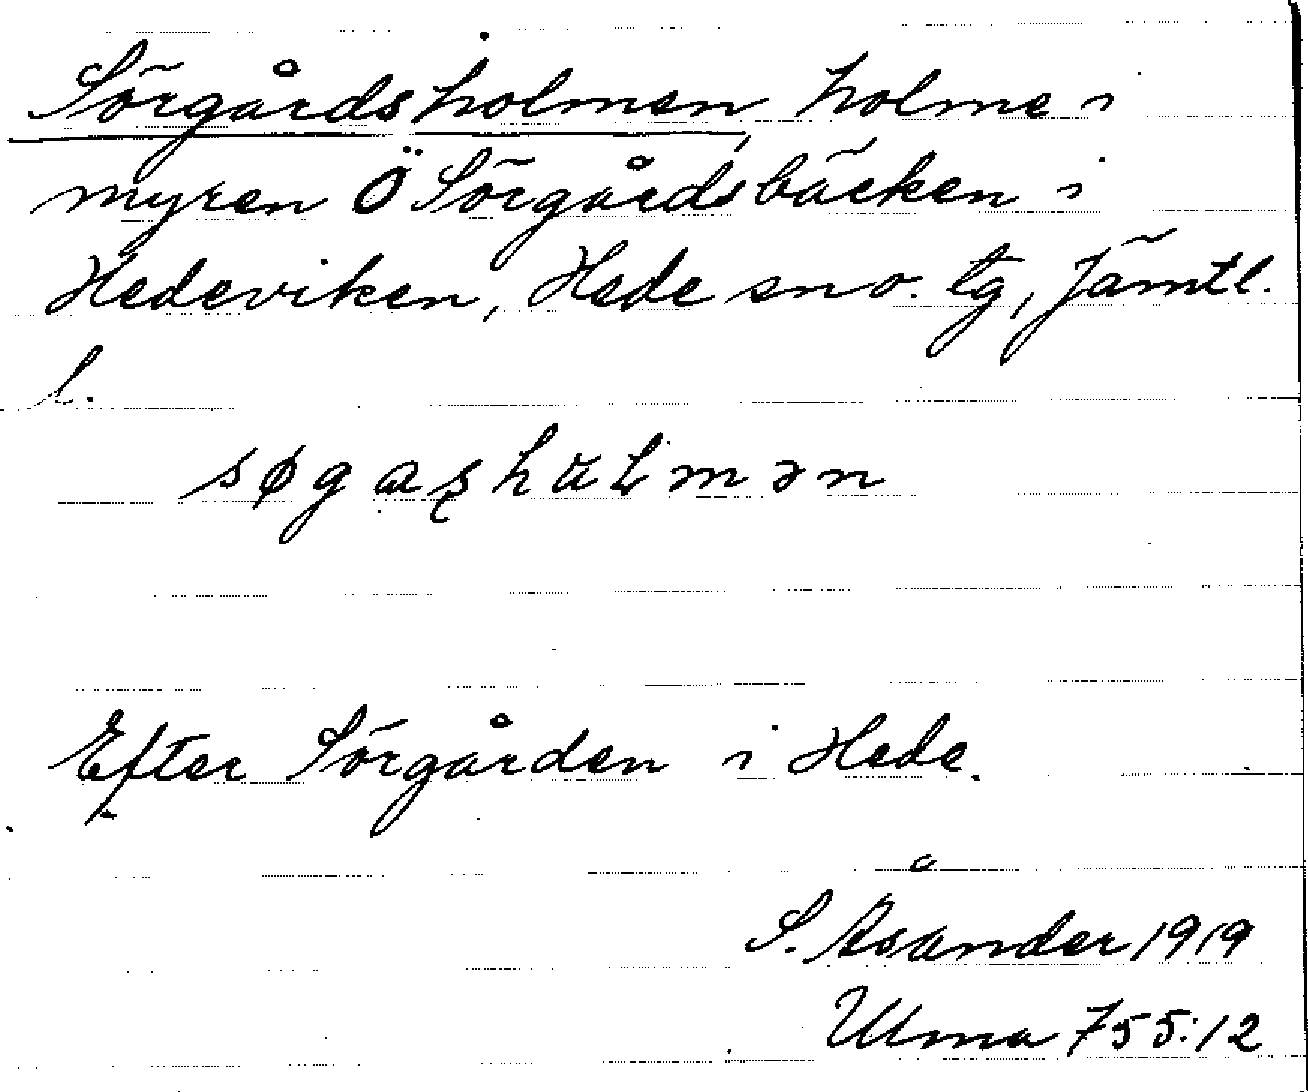 Sörgårdsholmen, holme i
myren Ö Sörgårdsbäcken i
Hedeviken, Hede sn o. tg, Jämtl.
l.
søgaʂhaɫmən
Efter Sörgården i Hede.
S. Åsander 1919
Ulma 755:12